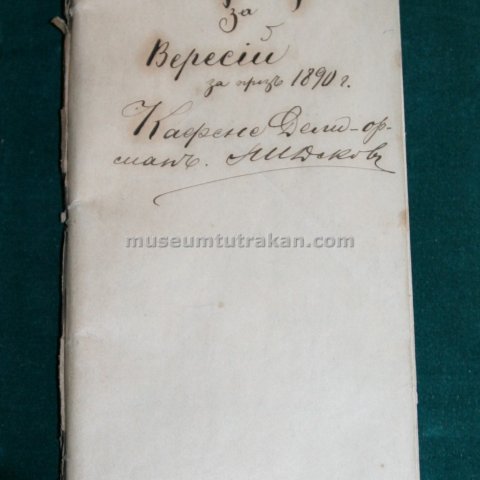 за
Вересіи
за презъ 1890 г.
Кафене Дели-ор-
манъ.
museumtutrakan.com